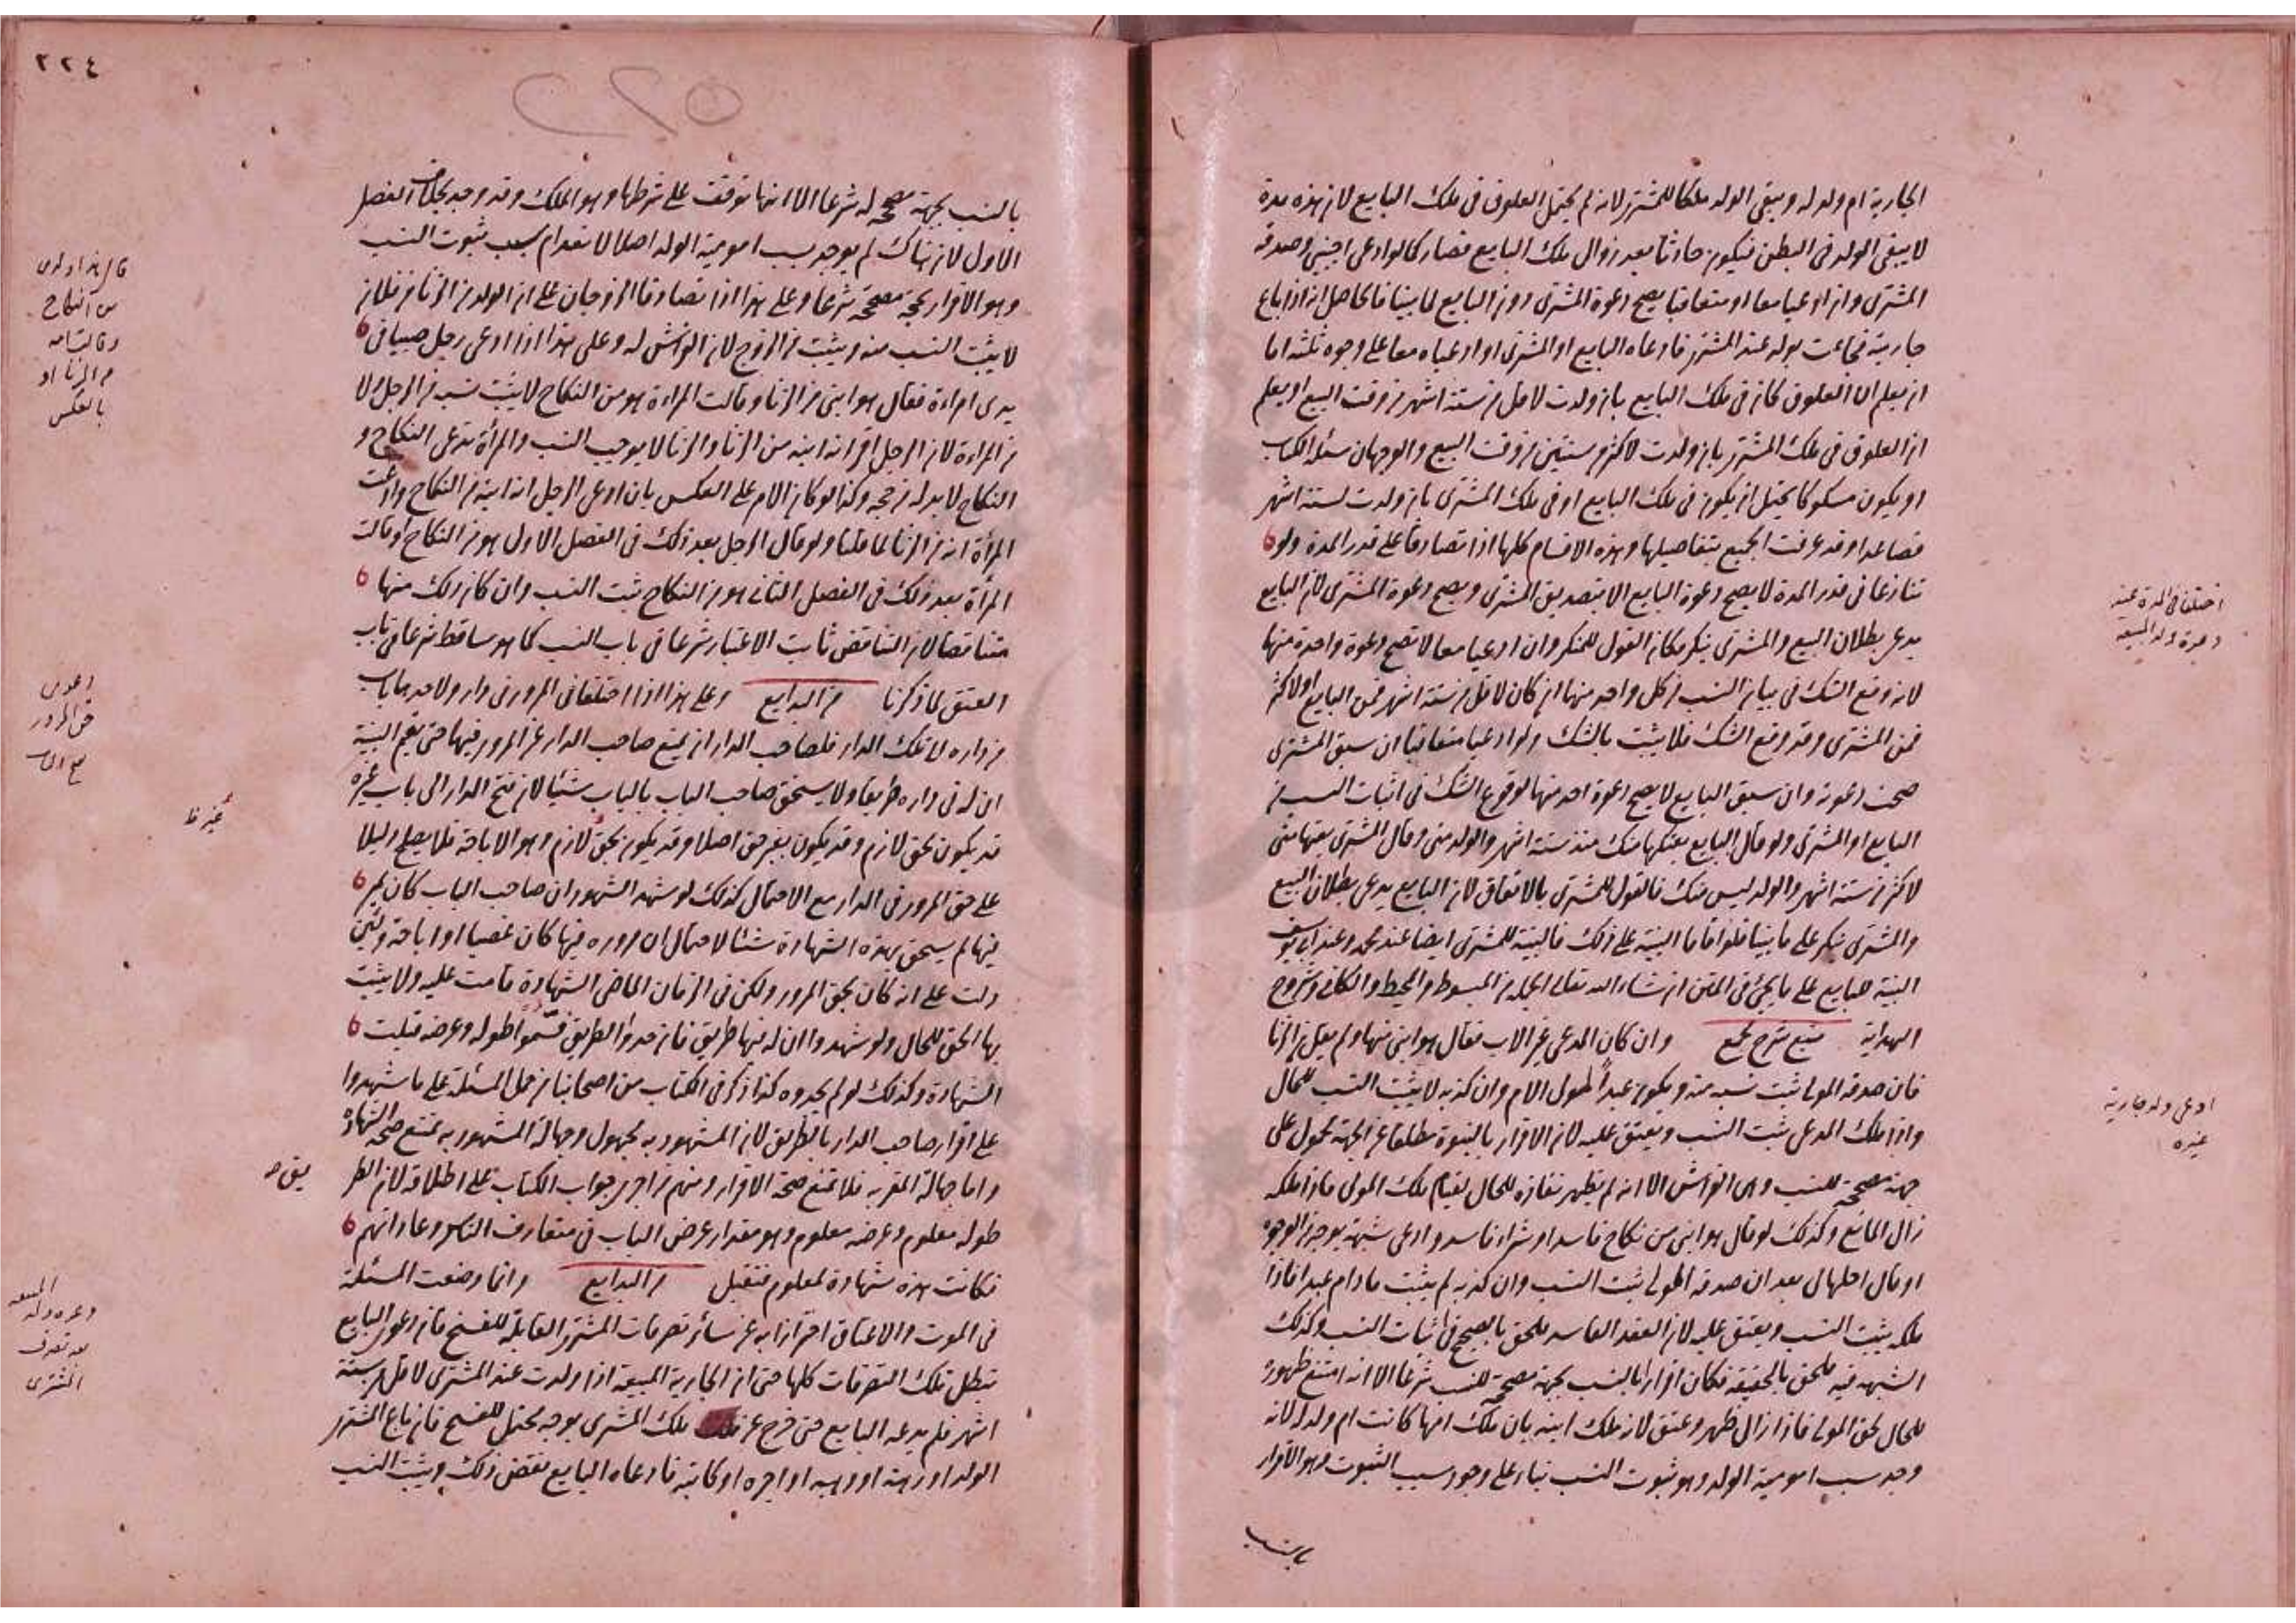 الجارية ام ولد له ويبقى الولد ملكا للمشتري لانه لم يحتمل العلوق في ملك البايع لان هذه مدة
لا يبقى الولد في البطن فيكون حادثا بعد زوال ملك البايع فصار كما لو ادعى اجنبي وصدقه
المشتري وان ادعيا معا او متعاقبا يصح دعوة المشتري دون البايع لما بينا فالحاصل انه اذا باع
جارية فجاءت بولد عند المشتري فادعاه البايع او المشتري او ادعياه معا على وجوه ثلثة اما
ان يعلم ان العلوق كان في ملك البايع بان ولدت لاقل من ستة اشهر من وقت البيع او يعلم
ان العلوق في ملك المشتري بان ولدت لاكثر من سنتين من وقت البيع والوجهان مسئلة الكتاب
او يكون مسكوكا يحتمل ان يكون في ملك البايع او في ملك المشتري بان ولدت لستة اشهر
فصاعدا وقد عرفت الجميع بتفاصيلها وهذه الاقسام كلها اذا تصادقا على قدر المدة ولو
تنازعا في قدر المدة لا يصح دعوة البايع الا بتصديق المشتري ويصح دعوة المشتري لان البايع
يدعي بطلان البيع والمشتري ينكر فكان القول للمنكر وان ادعيا معا لا تصح دعوة واحدة منهما
لانه وقع الشك في بيان النسب من كل واحد منهما ان كان لاقل من ستة اشهر فمن البايع او لاكثر
فمن المشتري وقد وقع الشك فلا يثبت بالشك ولو ادعيا متعاقبا ان سبق المشتري
صحت دعوته وان سبق البايع لا يصح دعوة احد منهما لوقوع الشك في اثبات النسب من
البايع او المشتري ولو قال البايع بعتكها منك منذ ستة اشهر والولد مني وقال المشتري بعتها مني
لاكثر من ستة اشهر والولد ليس منك فالقول للمشتري بالاتفاق لان البايع يدعي بطلان البيع
والمشتري ينكر على ما بينا فلو اقاما البينة على ذلك فالبينة للمشتري ايضا عند محمد وعند ابي يوسف
البينة للبايع على ما يجئ في المتن ان شاء الله تعالى الجملة من المبسوط والمحيط والكافي وشروح
الهداية منبع شرح مجمع وان كان المدعي غير الاب فقال هو ابني منها ولم يقل من الزنا
فان صدقه المولى ثبت نسبه منه ويكون عبدا لمولى الام وان كذبه لا يثبت النسب للحال
واذا ملك المدعي ثبت النسب ويعتق عليه لان الاقرار بالبنوة مطلقا عن الجهة محمول على
جهة مصححة للنسب وهي الفراش الا انه لم يظهر نفاذه للحال لقيام ملك المولى فاذا ملكه
زال المانع وكذلك لو قال هو ابني من نكاح فاسد او شراء فاسد وادعى شبهة بوجه من الوجوه
او قال احلها لي بعد ان صدقه المولى ثبت النسب وان كذبه لم يثبت ما دام عبدا فاذا
ملكه يثبت النسب ويعتق عليه لان العقد الفاسد ملحق بالصحيح في اثبات النسب وكذلك
الشبهة فيه ملحق بالحقيقة فكان اقرارا بالنسب بجهة مصححة للنسب شرعا الا انه امتنع ظهوره
للحال لحق المولى فاذا زال ظهر وعتق لانه ملك ابنه بان ملك امها كانت ام ولد له لانه
وجد سبب امومية الولد وهو ثبوت النسب بناء على وجود سبب الثبوت وهو الاقرار
بالنسب
اختلفا في المدة عند
دعوة ولد المبيعة
ادعى ولد جارية
غيره
٢٢٤
بالنسب بجهة مصححة له شرعا الا انها توقفت على شرطها وهو الملك وقد وجد بخلاف الفصل
الاول لان هناك لم يوجد سبب امومية الولد اصلا لانعدام سبب ثبوت النسب
وهو الاقرار بجهة مصححة شرعا وعلى هذا اذا تصادقا الزوجان على ان الولد من الزنا من فلان
لا يثبت النسب منه ويثبت من الزوج لان الفراش له وعلى هذا اذا ادعى رجل صبيا في
يدي امراءة فقال هو ابني من الزنا وقالت المراءة هو من النكاح لا يثبت نسبه من الرجل ولا
من المراءة لان الرجل اقر انه ابنه من الزنا والزنا لا يوجب النسب والمرأة تدعي النكاح و
النكاح لا بد له من حجة وكذا لو كان الامر على العكس بان ادعى الرجل انه ابنه من النكاح وادعت
المرأة انه من الزنا لما قلنا ولو قال الرجل بعد ذلك في الفصل الاول هو من النكاح او قالت
المرأة بعد ذلك في الفصل الثاني هو من النكاح ثبت النسب وان كان ذلك منهما
متناقضا لان التناقض ثابت الاعتبار شرعا في باب النسب كما هو ساقط شرعا في باب
العتق لما ذكرنا من البدايع وعلى هذا اذا اختلفا في المرور في دار ولاحدهما باب
من داره الى تلك الدار فلصاحب الدار ان يمنع صاحب الدار عن المرور فيها حتى يقيم البينة
ان له في داره طريقا ولا يستحق صاحب الباب بالباب شيئا لان فتح الدار الى باب غيره
قد يكون بحق لازم وقد يكون بغير حق اصلا وقد يكون بحق لازم وهو الاباحة فلا يصلح دليلا
على حق المرور في الدار مع الاحتمال كذلك لو شهد الشهود ان صاحب الباب كان يمر
فيها لم يستحق بهذه الشهادة شيئا لاحتمال ان مروره فيها كان غصبا او اباحة ولئن
دلت على انه كان بحق المرور ولكن في الزمان الماضي الشهادة قامت عليه ولا يثبت
بها الحق للحال ولو شهدوا ان له فيها طريق فان حدوا الطريق فسموا طوله وعرضه قبلت
الشهادة وكذلك لو لم يحدوه كذا ذكر في الكتاب من اصحابنا من حمل المسئلة على ما شهدوا
على اقرار صاحب الدار بالطريق لان المشهود به مجهول وجهالة المشهود به تمنع صحة الشهادة
واما جهالة المقر به فلا تمنع صحة الاقرار ومنهم من اجرى جواب الكتاب على اطلاقه لان الطر
يق صـ
طوله معلوم وعرضه معلوم وهو مقدار عرض الباب في متعارف الناس وعاداتهم
فكانت هذه شهادة لمعلوم فتقبل من البدايع وانما وضعت المسئلة
في الموت والاعتاق احترازا به عن سائر تصرفات المشتري القابلة للفسخ فان دعوى البايع
تبطل تلك التصرفات كلها حتى ان الجارية المبيعة اذا ولدت عند المشتري لاقل من ستة
اشهر فلم يدعه البايع حتى خرج عن ملك المشتري بوجه محتمل للفسخ فان باع المشتري
الولد او رهنه او وهبه او اجره او كاتبه فادعاه البايع نقض ذلك ويثبت النسب
قال هذا ولدي
من النكاح
وقالت امه
من الزنا او
بالعكس
دعوى
حق المرور
مع الباب
غير ظ
المبيعة
دعوة ولد
بعد تصرف
المشتري